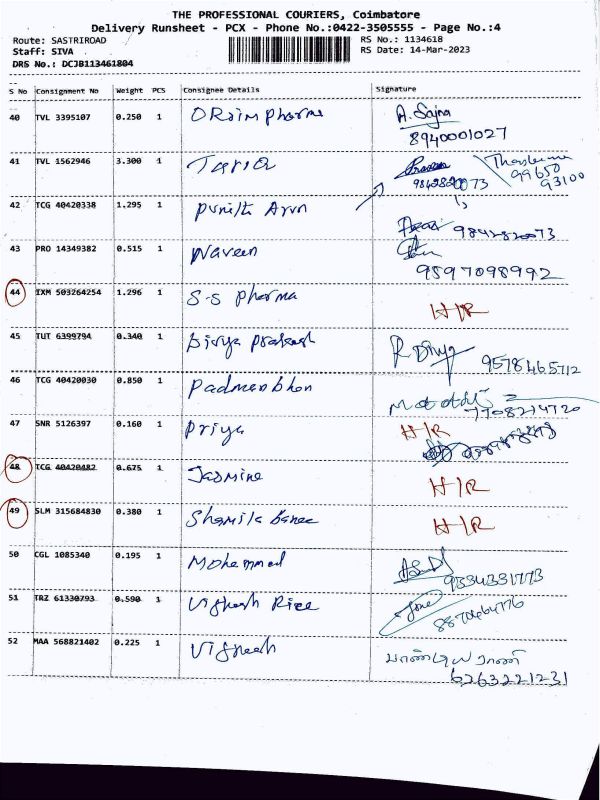 THE PROFESSIONAL COURIERS, Coimbatore
Delivery Runsheet - PCX - Phone No.:0422-3505555 - Page No.:4
Route: SASTRIROAD RS No.: 1134618
Staff: SIVA RS Date: 14-Mar-2023
DRS No.: DCJB113461804
S No Consignment No Weight PCS Consignee Details Signature
40 TVL 3395107 0.250 1 A. Sajna
8940001027
41 TVL 1562946 3.300 1 99650
93100
42 TCG 40420338 1.295 1 Punith Arun
9842820073
43 PRO 14349382 0.515 1 Naveen
9597098992
44 IXM 503264254 1.296 1 S-S Pharma H/R
45 TUT 6399794 0.340 1 Divya Prakash
9578465712
46 TCG 40420030 0.850 1
7708214720
47 SNR 5126397 0.160 1 Priya H/R
48 TCG 40420482 0.675 1 Jasmine H/R
49 SLM 315684830 0.380 1 Shamila Banee H/R
50 CGL 1085340 0.195 1 Mohammad
9334331773
51 TRZ 61330793 0.590 1
52 MAA 568821402 0.225 1 Vignesh
6263221231